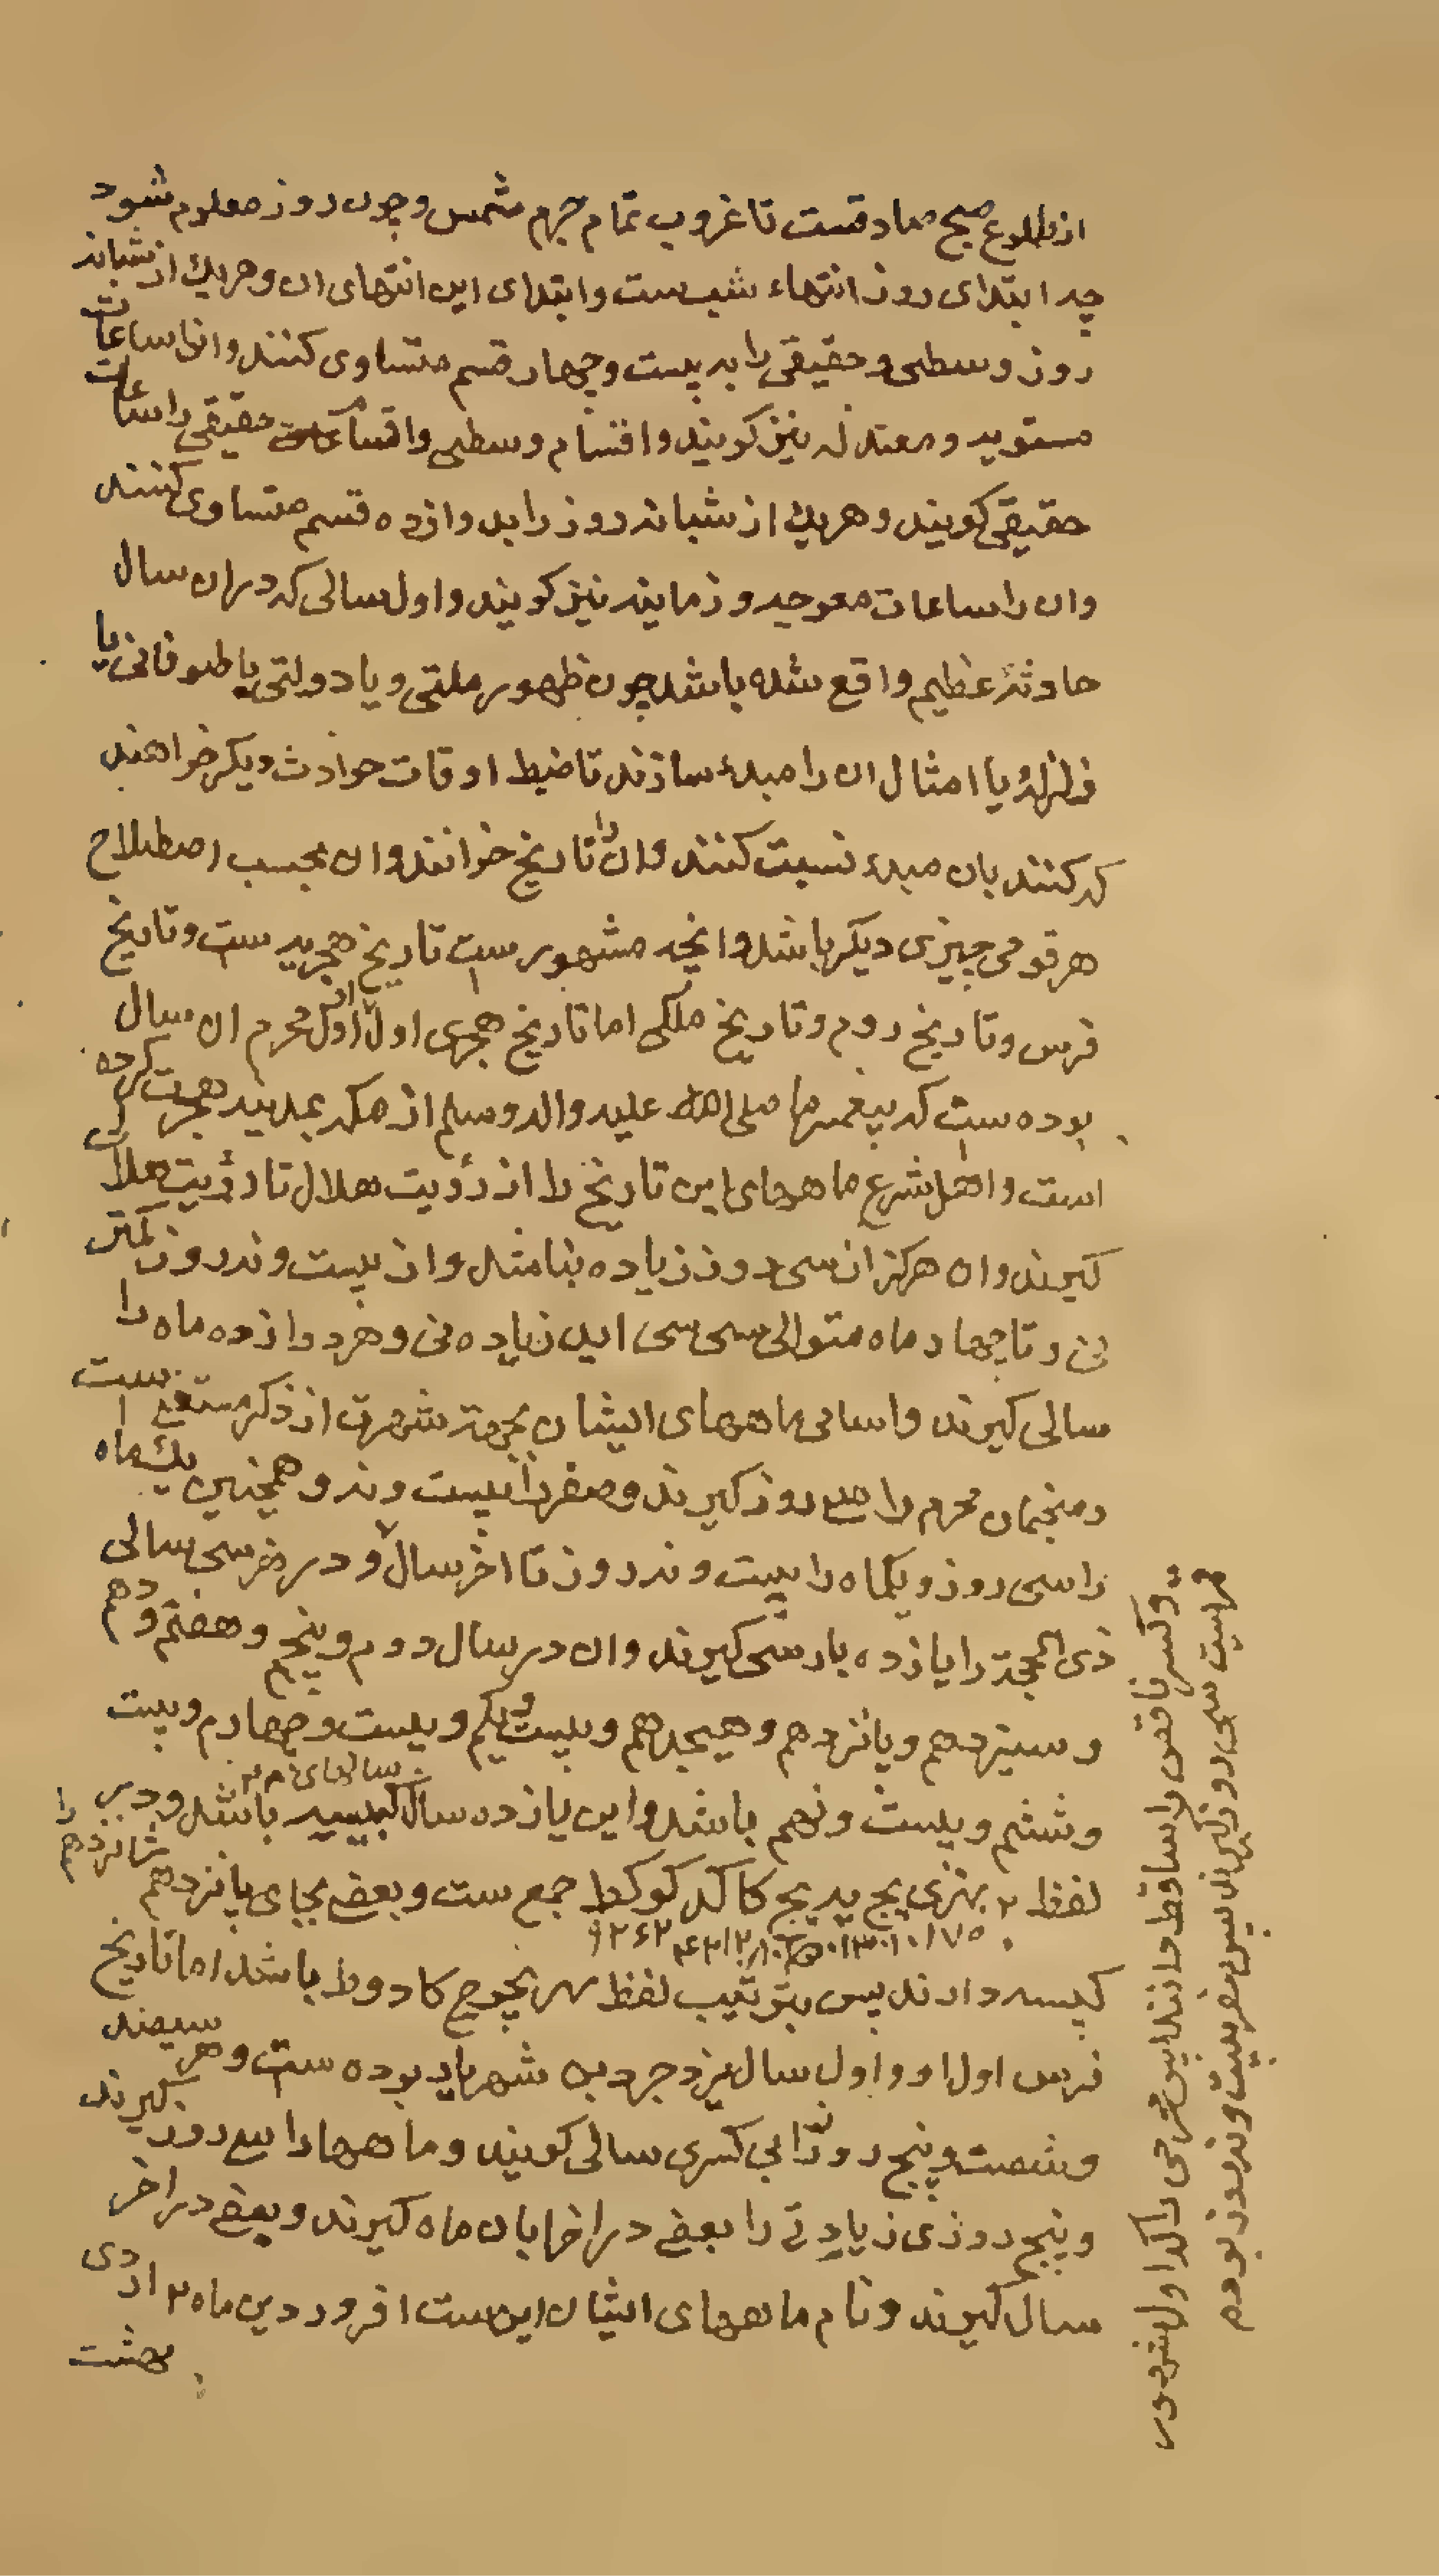 از طلوع صبح صادقست تا غروب تمام جرم شمس و چون روز معلوم شود
چه ابتدای روز انتهاء شب ست و ابتدای این انتهای ان و هریك از شبانه
روز وسطی و حقیقی را به بیست و چهار قسم متساوی کنند و انرا ساعات
مستویه و معتدله نیز کویند و اقسام وسطی و اقسام حقیقی را ساعات
حقیقی کویند و هریك از شبانه روز را بدوازده قسم متساوی کنند
وان را ساعات معوجه و زمانیه نیز کویند و اول سالی که در ان سال
حادثهٔ عظیم واقع شده باشد چون ظهور ملتی و یا دولتی یا طوفانی یا
زلزلهٔ یا امثال ان را مبدء سازند تا ضبط اوقات حوادث دیکر خواهند
که کنند بان مبدء نسبت کنند وان را تاریخ خوانند وان بحسب اصطلاح
هر قومی چیزی دیکر باشد وانچه مشهور ست تاریخ هجریه ست و تاریخ
فرس و تاریخ روم و تاریخ ملکی اما تاریخ هجری اول از اول محرم ان سال
بوده ست که پیغمبر ما صلی الله علیه واله وسلم از مکه بمدینه هجرت کرده
است و اهل شرع ماههای این تاریخ را از رؤیت هلال تا رؤیت هلال
کیرند وان هرکز از سی روز زیاده نباشد و از بیست و نه روز کمتر
نی و تا چهار ماه متوالی سی سی اید زیاده نی و هر دوازده ماه را
سالی کیرند و اسامی ماههای ایشان بجهة شهرت از ذکر مستغنی است
و منجمان محرم را سی روز کیرند و صفر را بیست و نه و همچنین یك ماه
را سی روز و یکماه را بیست و نه روز تا اخر سال و در هر سی سالی
ذی الحجة را یازده بار سی کیرند وان در سال دوم و پنجم و هفتم و دهم
و سیزدهم و پانزدهم و هیجدهم و بیست و یکم و بیست و چهارم و بیست
و ششم و بیست و نهم باشد و این یازده سال سالهای کبیسه باشد و در
لفظ بهزی یج یه یح کا کد کو کط جمع ست و بعضی بجای پانزدهم شانزدهم را
کبیسه دارند پس بترتیب لفظ باشد اما تاریخ
فرس اول او اول سال یزدجرد بن شهریار بوده ست و هر سیصد
و شصت و پنج روز را بی کسری سالی کویند و ماهها را سی روز کیرند
و پنج روزی زیادتی را بعضی در اخر ابان ماه کیرند و بعضی در اخر
سال کیرند و نام ماههای ایشان این ست افروردین ماه اردی
بهشت
و کسر ناقص را ساقط دانند این محرمی را که اول شهور